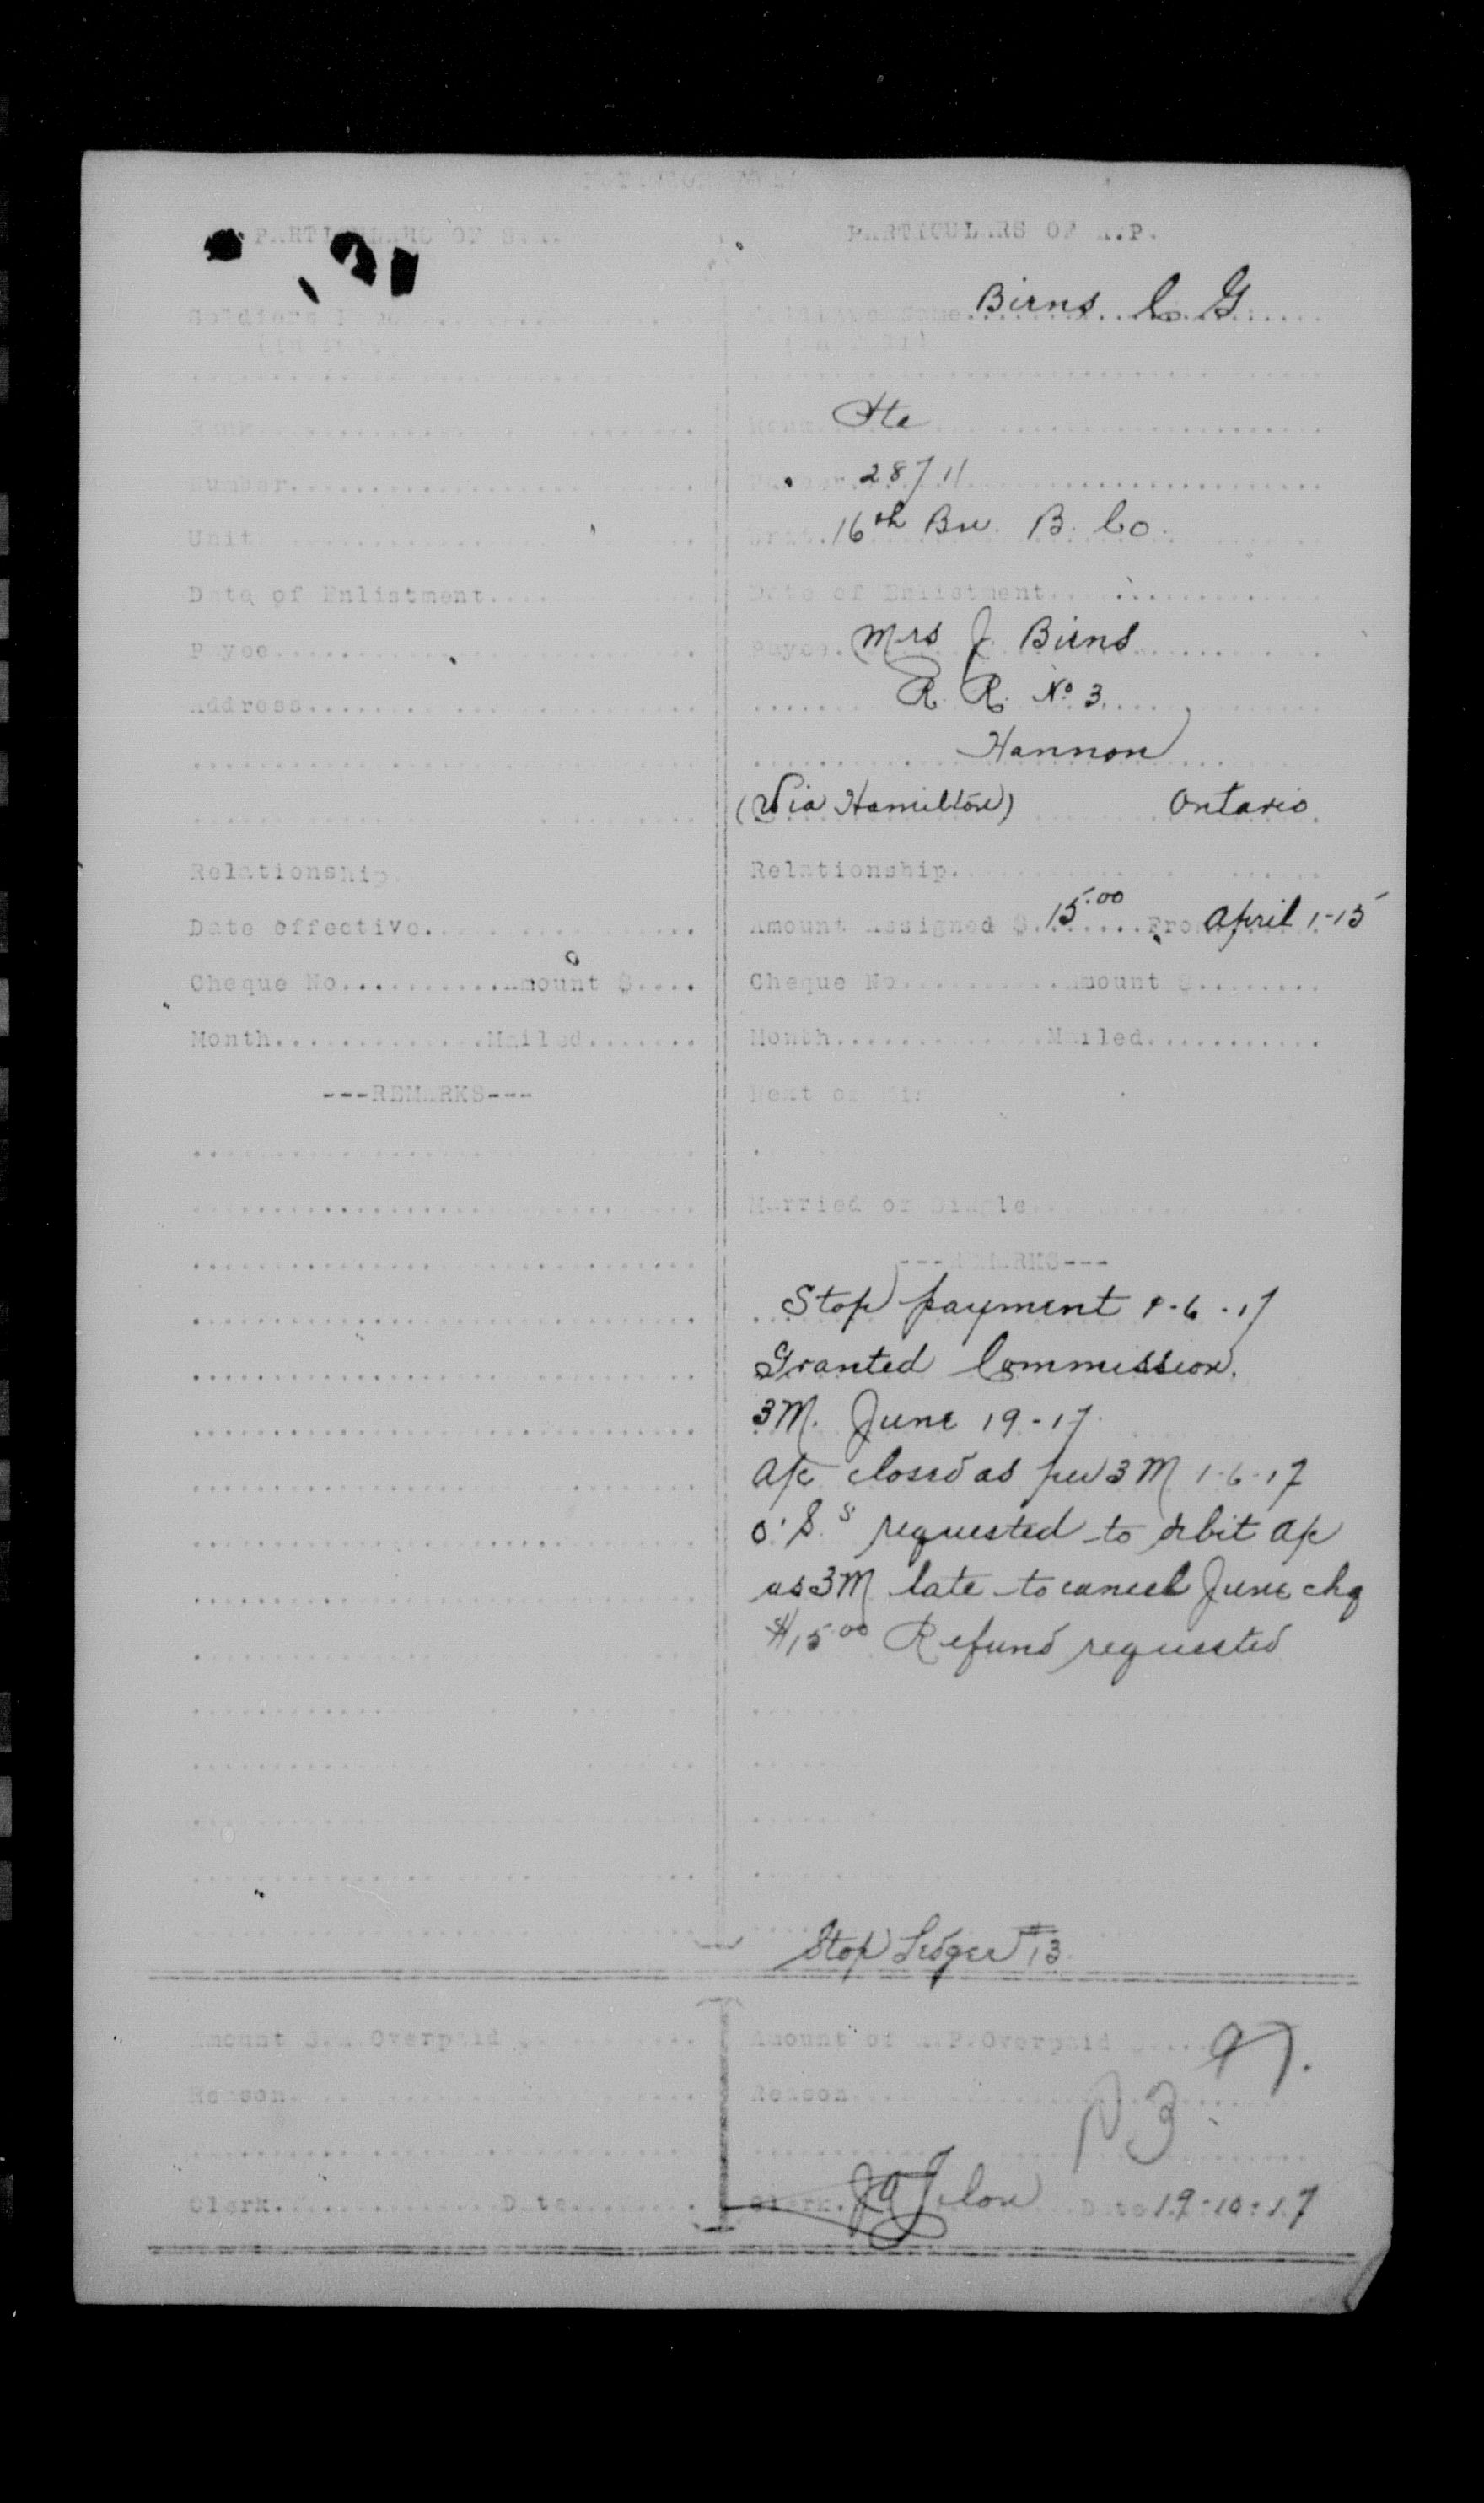 PARTICULARS OF S.A.
PARTICULARS OF A.P.
Soldiers
Name Birns C G
Rank Pte
Number
Number 28711
Unit
Unit 16th Bn. B. Co.
Date of Enlistment
Date of Enlistment
Payee
Payee Mrs J. Birns
Address
R. R. No 3
Hannon
(Via Hamilton) Ontario
Relationship
Relationship
Date effective
Amount Assigned $ 15.00 From April 1-15
Cheque No Amount $
Cheque No Amount $
Month Mailed
Month Mailed
---REMARKS---
Next of Kin
Married or Single
---REMARKS---
Stop payment 1-6-17
Granted Commission.
3M. June 19-17.
A/c closed as per 3M 1-6-17
requested to debit a/c
as 3M late to cancel June chq
$15.00 Refund requested
Stop Ledger #13
Amount S.A. Overpaid $
Amount of A.P. Overpaid $
Reason
Reason
Clerk Date
Clerk Date 19-10-17